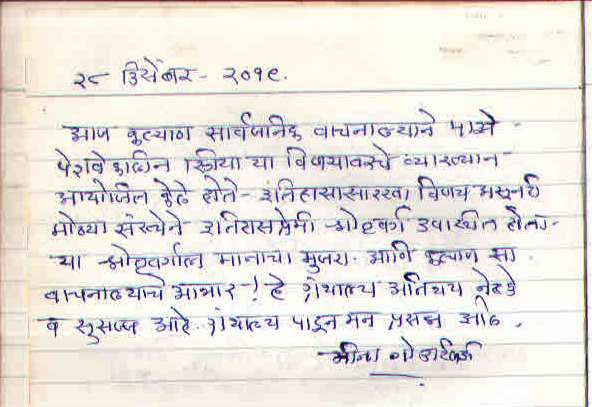 २८ डिसेंबर - २०१९.
आज कल्याण सार्वजनिक वाचनालयाने माझे -
पेशवेकालिन स्त्रिया या विषयावरचे व्याख्यान -
आयोजित केले होते - इतिहासासारखा विषय असूनही
मोठ्या संख्येने इतिहासप्रेमी श्रोतृवर्ग उपस्थित होता.
या श्रोतृवर्गाला मानाचा मुजरा. आणि कल्याण सा.
वाचनालयाचे आभार! हे ग्रंथालय अतिशय नेटके
व सुसज्ज आहे. ग्रंथालय पाहून मन प्रसन्न होते.